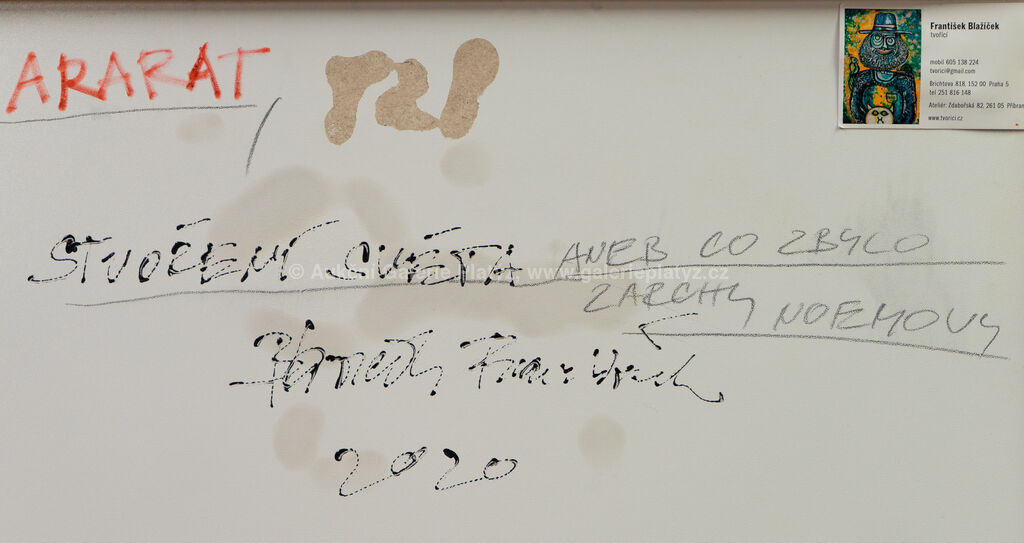 ARARAT
František Blažíček
tvořící
mobil 605 138 224
tvorici@gmail.com
Brichtova 818, 152 00 Praha 5
tel 251 816 148
Ateliér: Zdabořská 82, 261 05 Příbram
www.tvorici.cz
STVOŘENÍ SVĚTA ANEB CO ZBYLO
Z ARCHY NOEMOVY
© Aukční Galerie Platýz, www.galerieplatyz.cz
František
2020